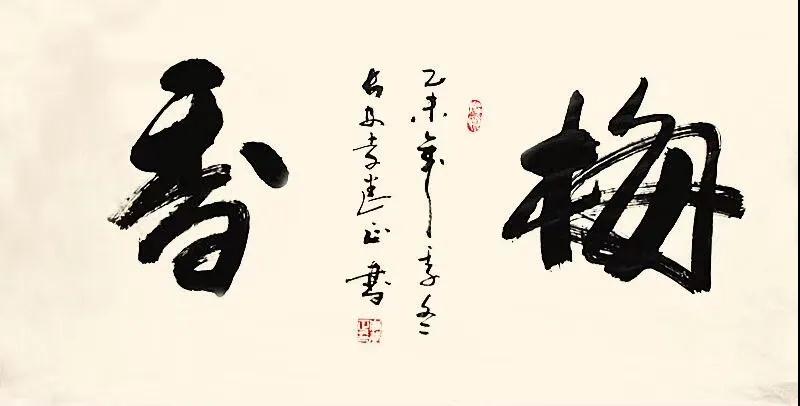 梅香
乙未年季冬
安建正書